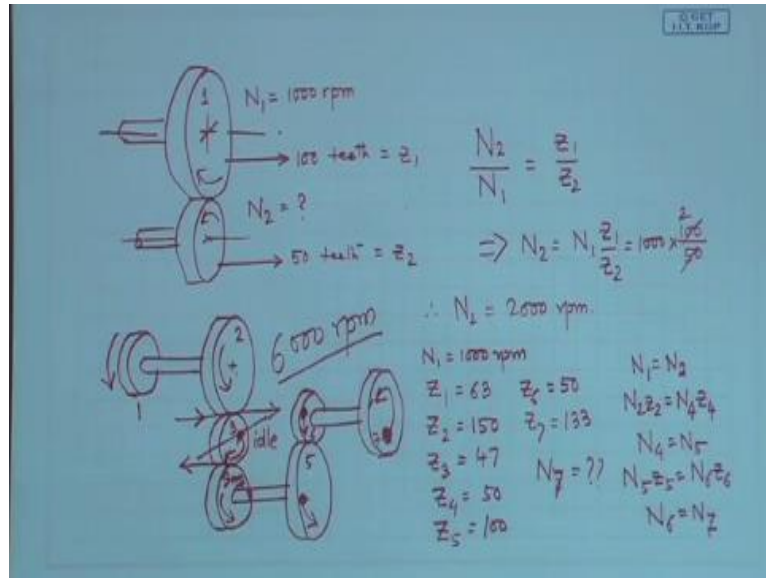 © CET
I.I.T. KGP
1
N₁ = 1000 rpm
100 teeth = Z₁
N₂ = ?
50 teeth = Z₂
N₂/N₁ = Z₁/Z₂
⇒ N₂ = N₁ Z₁/Z₂ = 1000 × 100/50
2
∴ N₂ = 2000 rpm.
6000 rpm
1
2
3
idle
5
7
N₁ = 1000 rpm
Z₁ = 63
Z₂ = 150
Z₃ = 47
Z₄ = 50
Z₅ = 100
Z₆ = 50
Z₇ = 133
N₇ = ??
N₁ = N₂
N₂Z₂ = N₄Z₄
N₄ = N₅
N₅Z₅ = N₆Z₆
N₆ = N₇